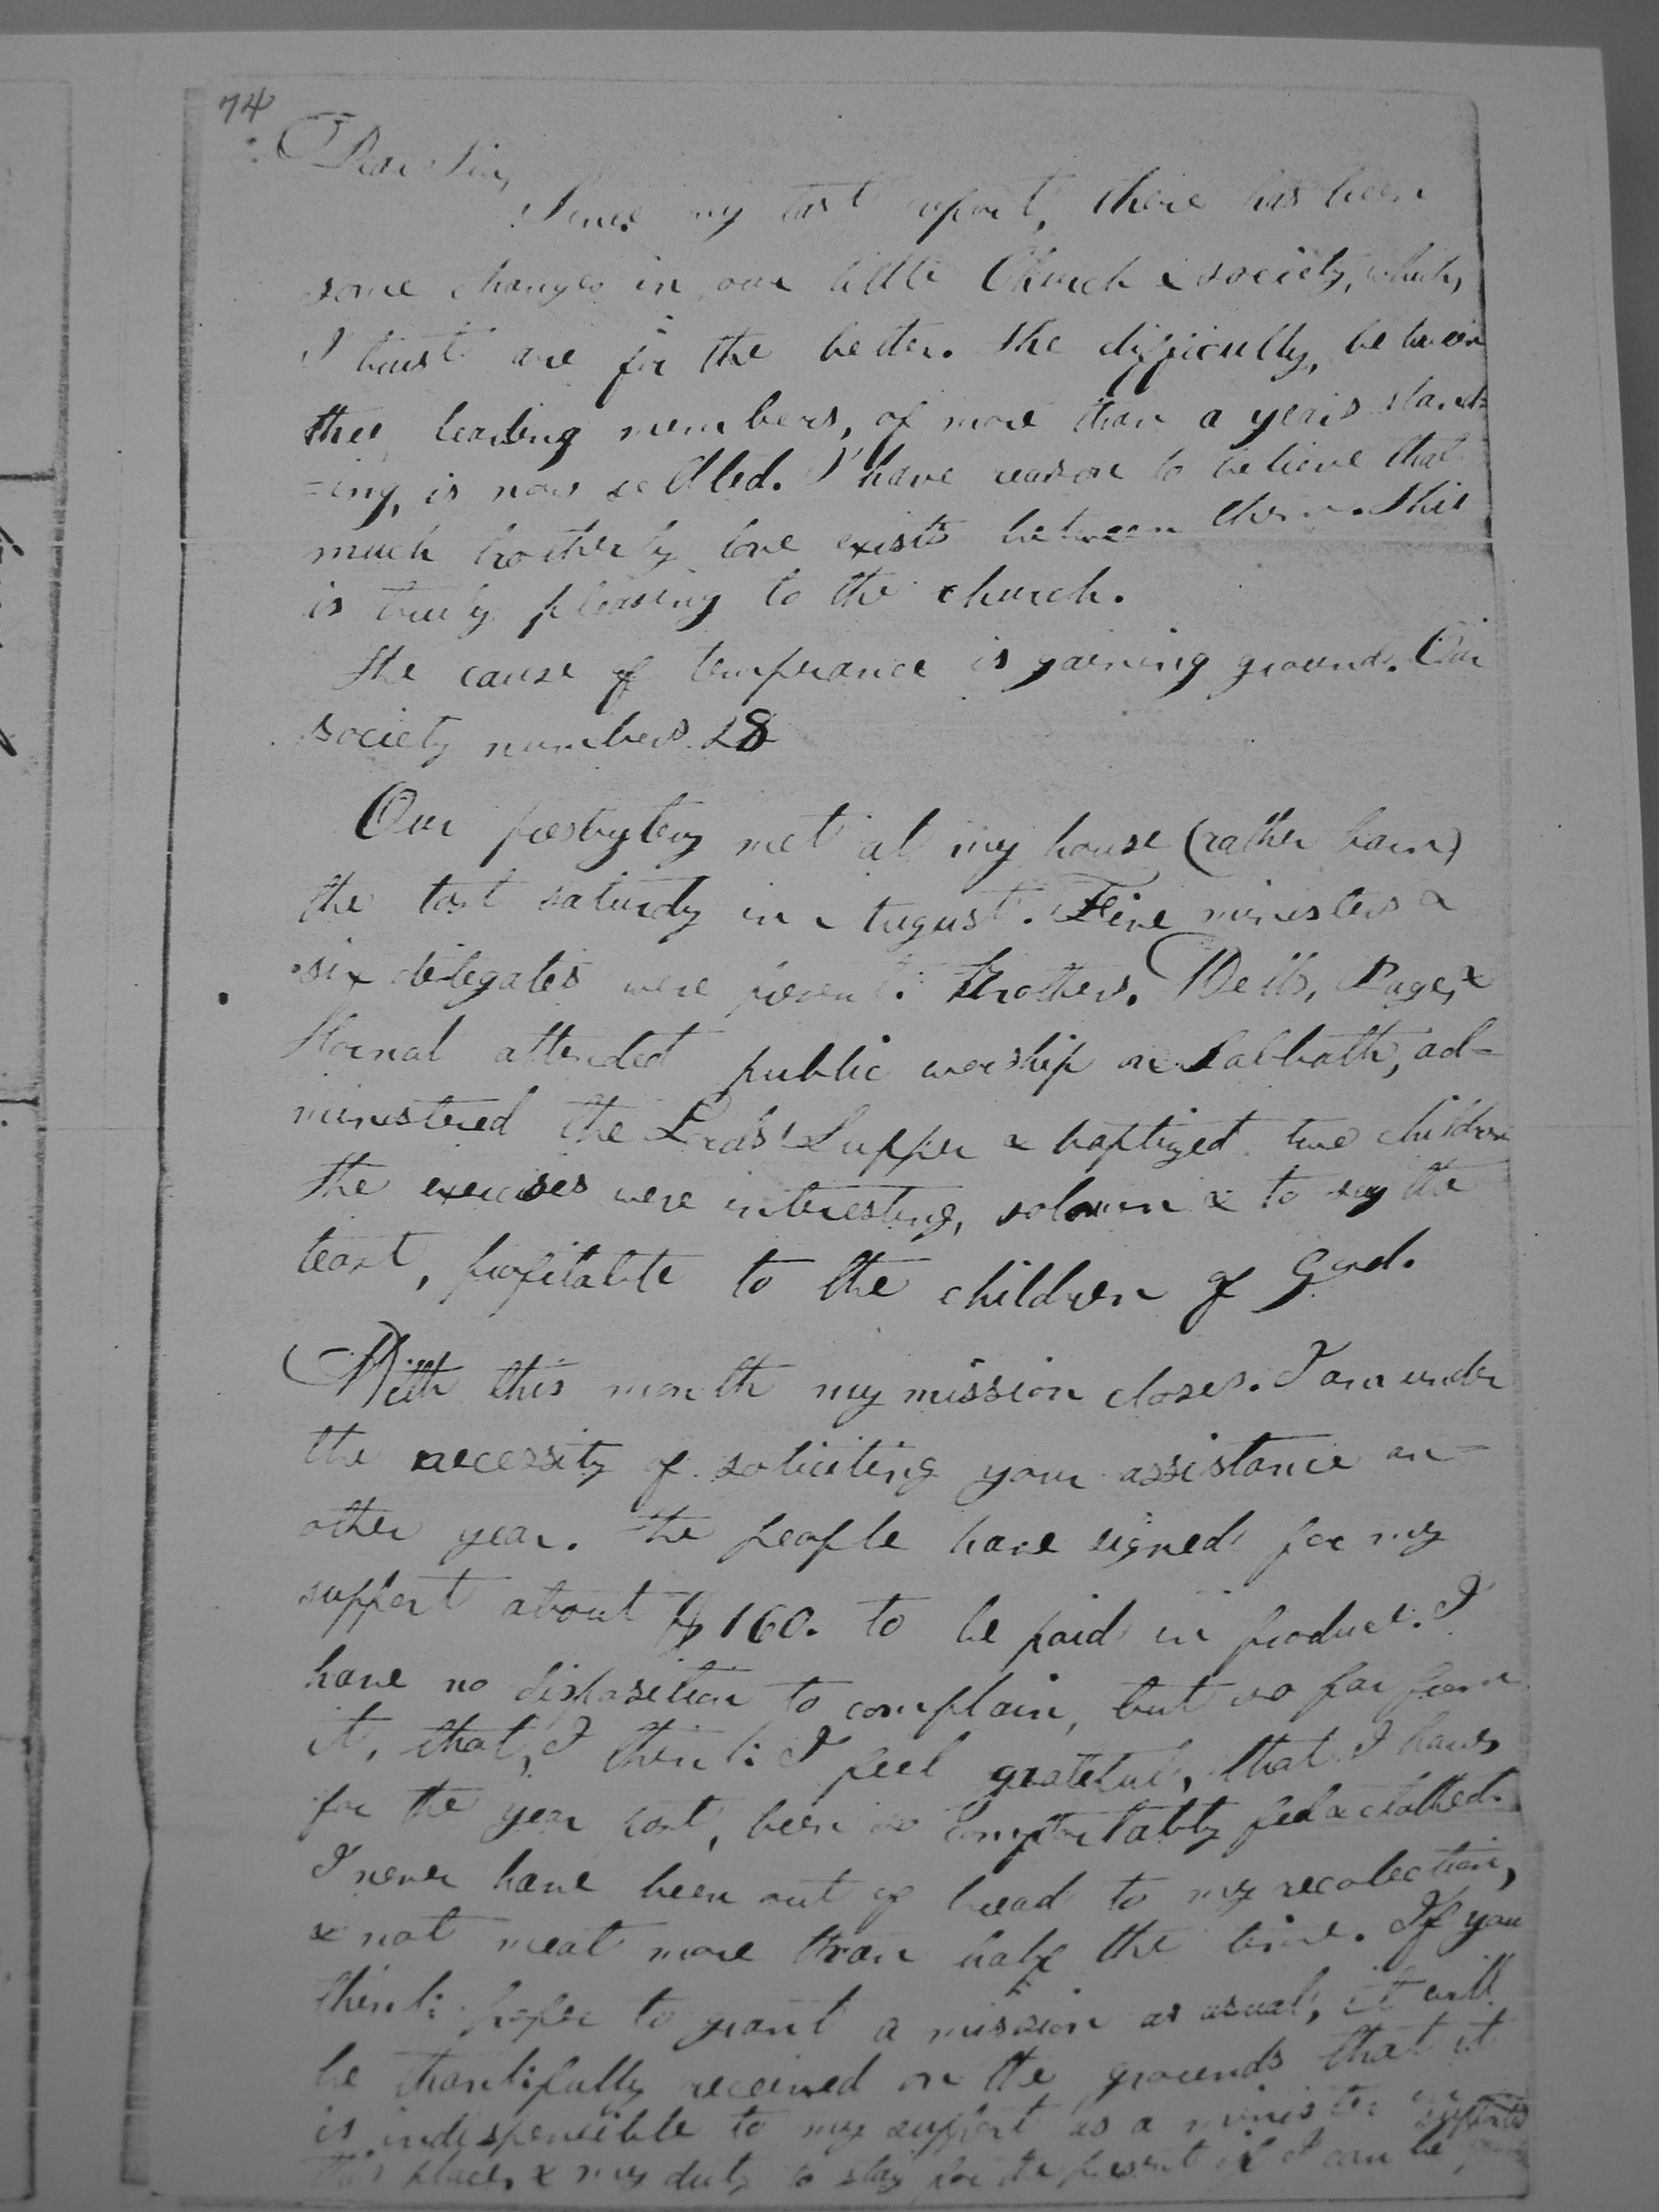 74
Dear Sir,
Since my last report, there has been
some changes in our little Church & society, which,
I trust are for the better. The difficulty, between
three leading members, of more than a years stand=
=ing, is now settled. I have reason to believe that
much brotherly love exists between them. This
is truly pleasing to the church.
The cause of temprance is gaining ground. Our
society numbers 28
Our presbytery met at my house (rather barn)
the last saturdy in August. Five ministers &
six delegates were present. Brothers. Wells, Page, &
attended public worship on Sabbath, ad=
ministered the Lords' Supper & baptized two children
the exercises were interesting, solemn & to say the
least, profitable to the children of God.
With this month my mission closes. I am under
the necessity of soliciting your assistance an=
other year. The people have signed for my
support about $160. to be paid in produce. I
have no disposition to complain, but so far from
it, that, I think I feel grateful, that I have,
for the year past, been so comfortably fed & clothed.
I never have been out of bread to my recolection,
& not meat more than half the time. If you
think proper to grant a mission as usual, it will
be thankfully received on the grounds that it
is indispencible to my support as a minister in
this place, & my duty to stay for the present if I can be supported